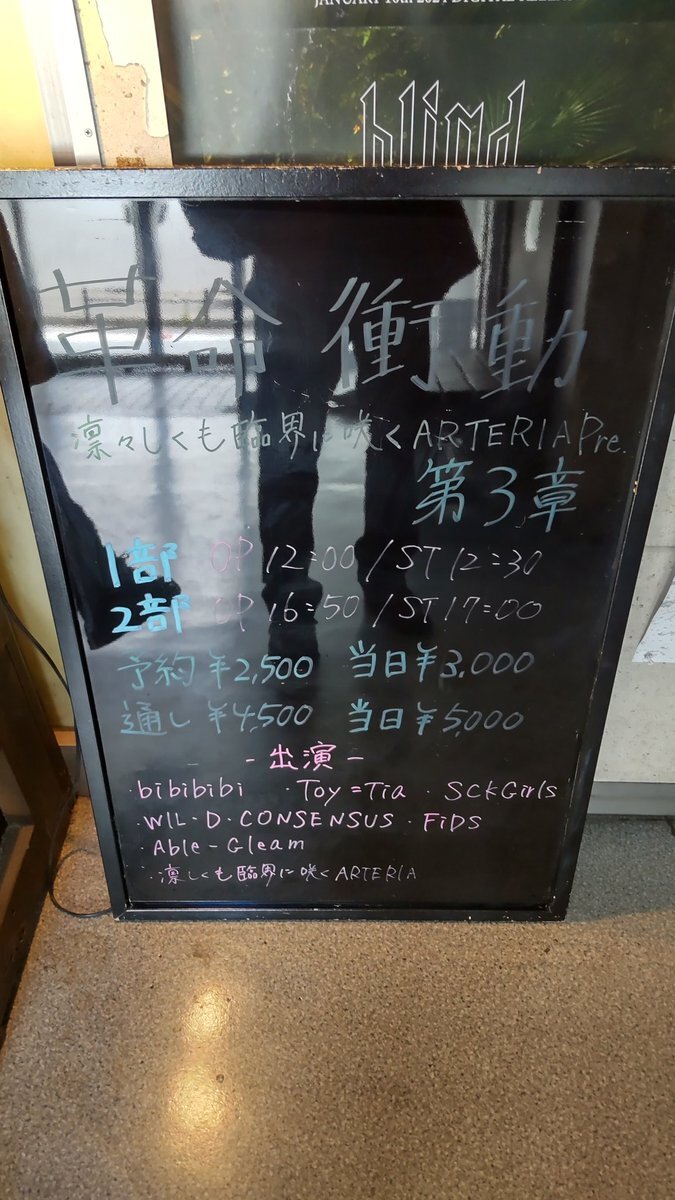 JANUARY 10th 2024 DIGITAL
blind
革命衝動
凛々しくも臨界に咲くARTERIA Pre.
第3章
1部 OP 12:00 / ST 12:30
2部 OP 16:50 / ST 17:00
予約 ¥2,500 当日 ¥3,000
通し ¥4,500 当日 ¥5,000
- 出演 -
・bibibibi ・Toy=Tia ・SCKGirls
・WIL・D・CONSENSUS ・FiDS
・Able-Gleam
・凛しくも臨界に咲くARTERIA